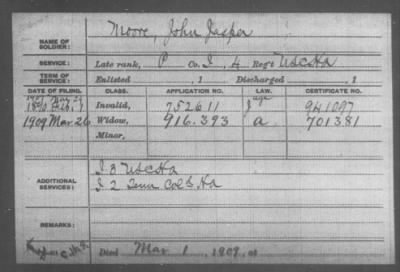 NAME OF SOLDIER: Moore, John Jasper
SERVICE: Late rank, P Co. I, 4 Reg't USCHA
TERM OF SERVICE: Enlisted , 1 Discharged , 1
DATE OF FILING. CLASS. APPLICATION NO. LAW. CERTIFICATE NO.
Invalid, 752611 941097
1909 Mar 26 Widow, 916.393 a 701381
Minor,
ADDITIONAL SERVICES: I 3 USCHA
I 2 Tenn Col'd HA
REMARKS:
Died Mar 1, 1909, at